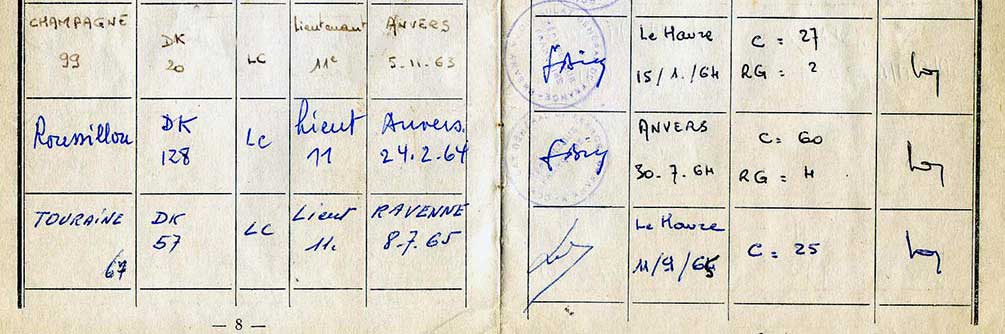 CHAMPAGNE
99
DK
20
LC
Lieutenant
11e
ANVERS
5-11-63
Le Havre
15/1./64
C = 27
RG = 2
Roussillon
DK
128
LC
Lieut
11
Anvers.
24.2.64
ANVERS
30-7-64
C = 60
RG = 4
TOURAINE
67
DK
57
LC
Lieut
11e
RAVENNE
8.7.65
Le Havre
11/9/65
C = 25
— 8 —